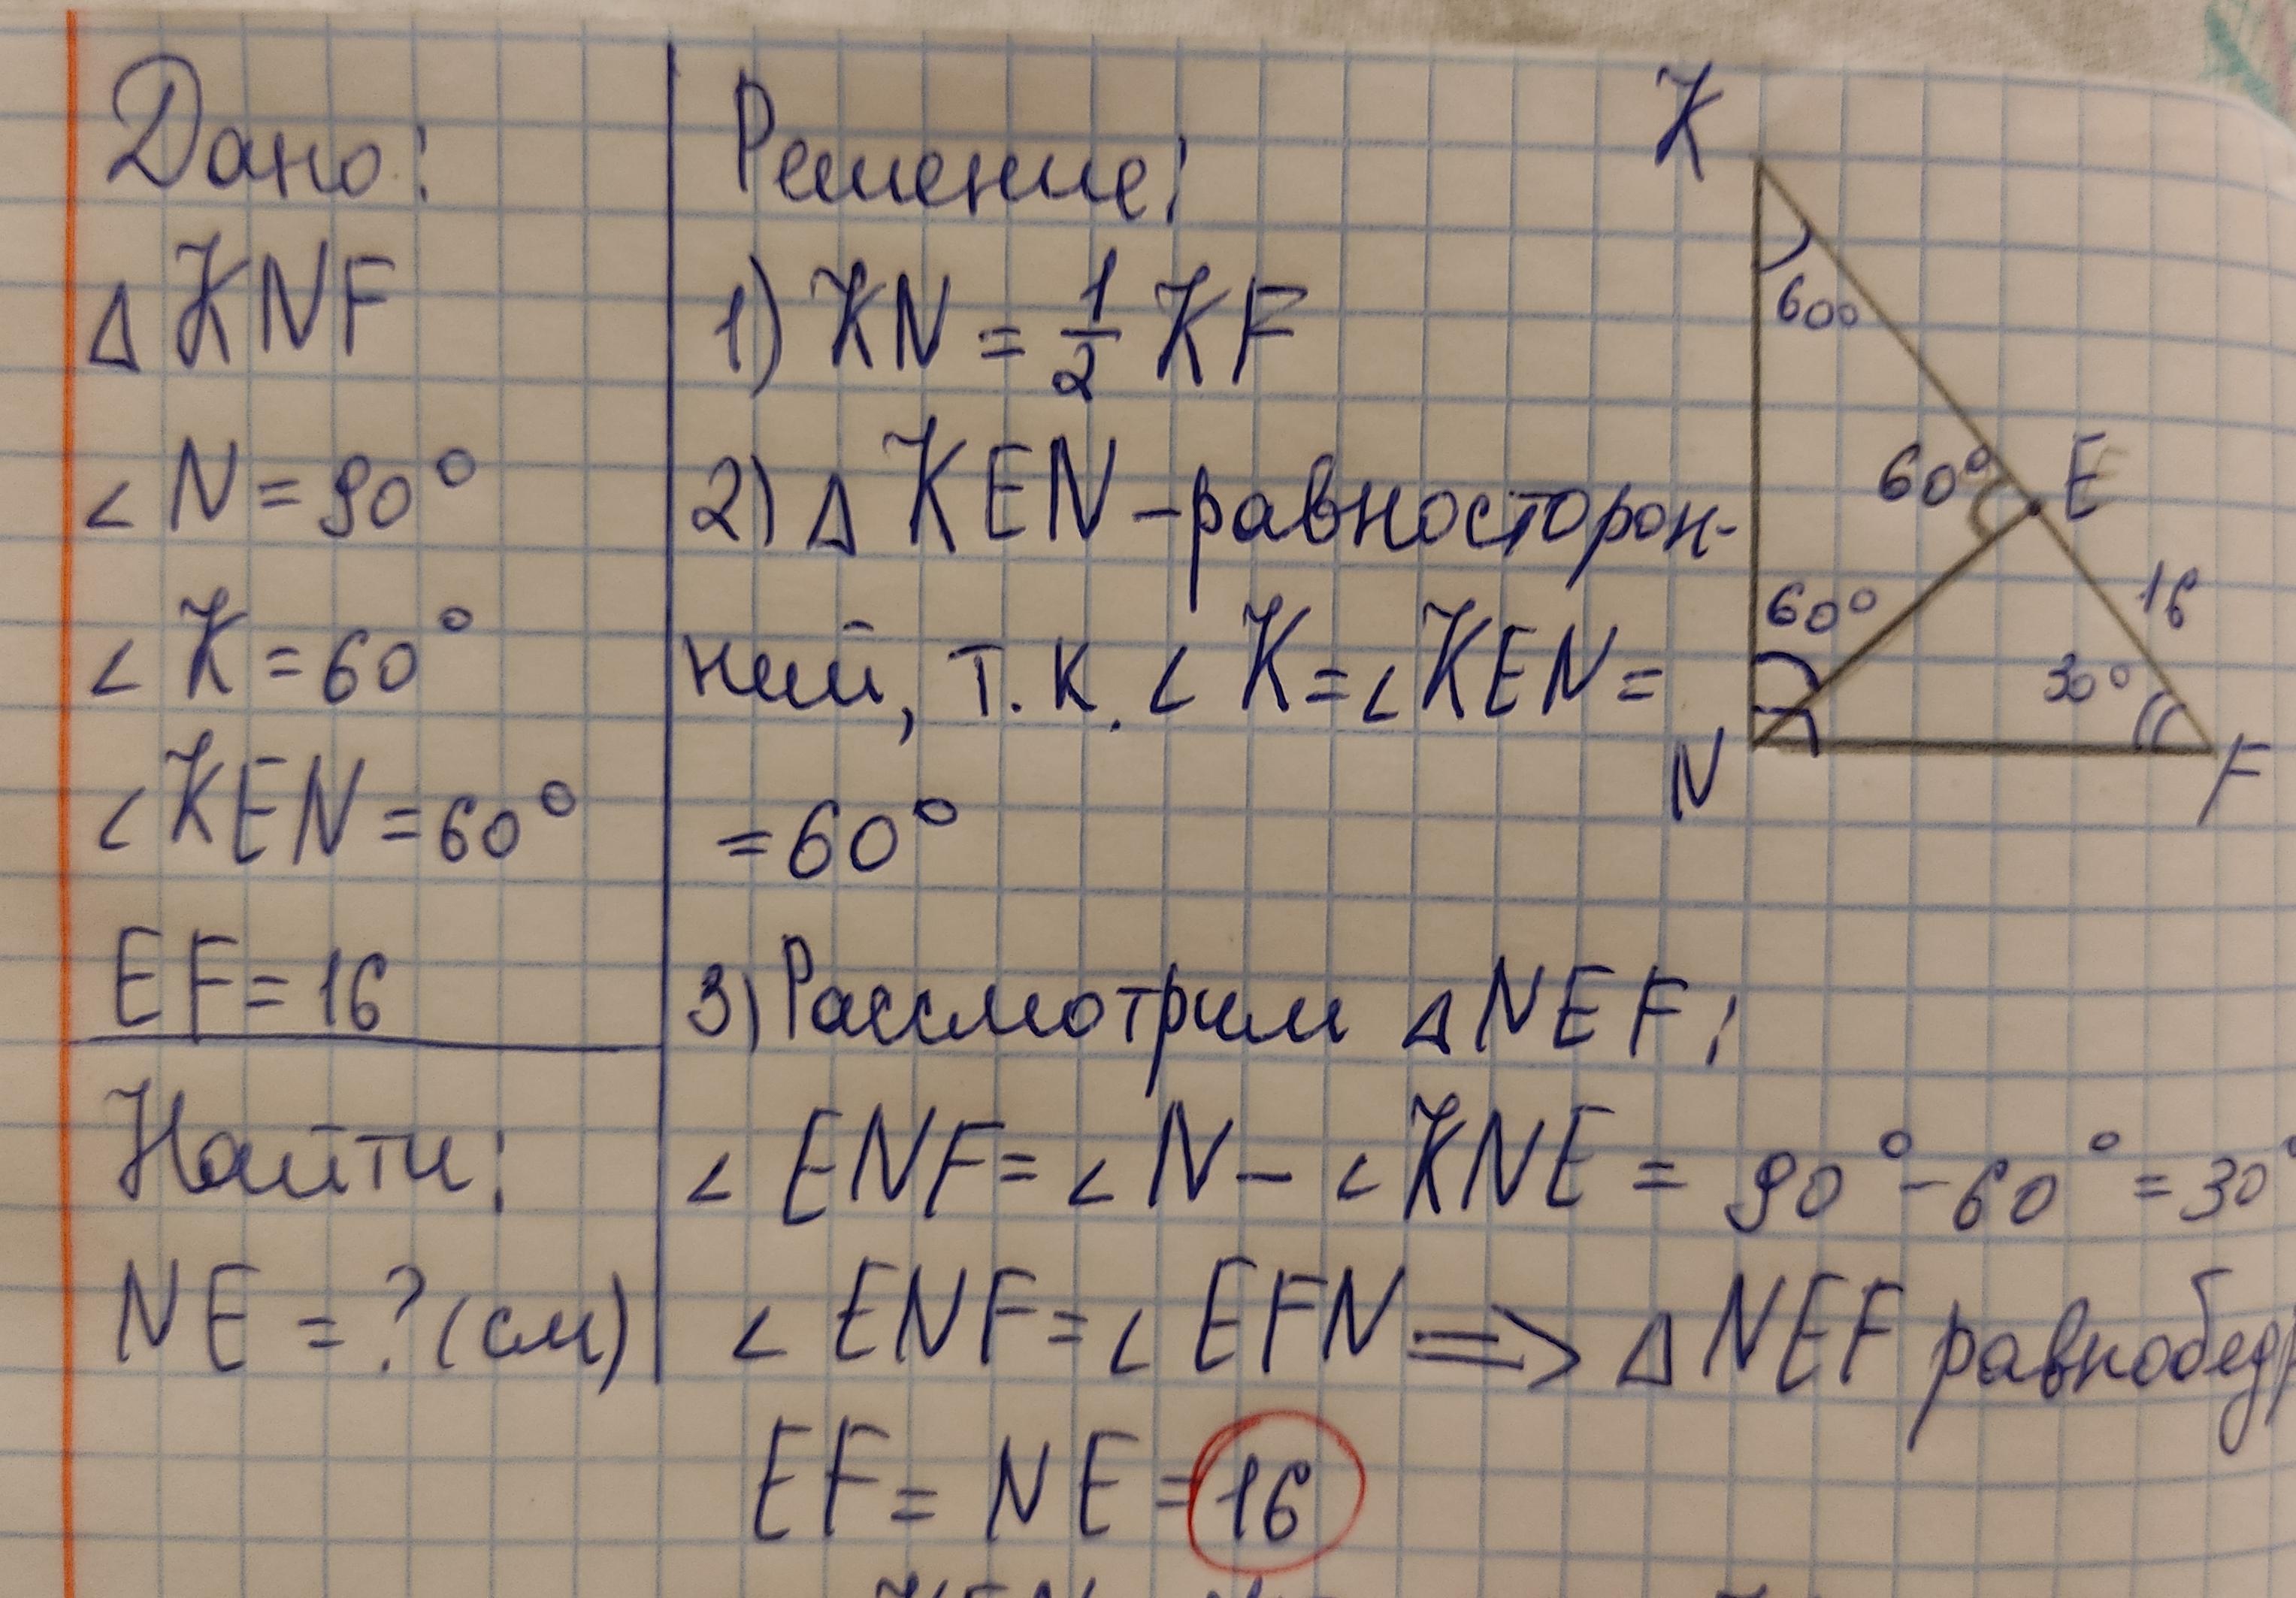 Дано:
Δ KNF
∠ N = 90°
∠ K = 60°
∠ KEN = 60°
EF = 16
Найти:
NE = ? (см)
Решение:
1) KN = 1/2 KF
2) Δ KEN – равносторон-
ний, т.к. ∠ K = ∠ KEN =
= 60°
3) Рассмотрим Δ NEF:
∠ ENF = ∠ N – ∠ KNE = 90° – 60° = 30°
∠ ENF = ∠ EFN ⟹ Δ NEF равнобедр
EF = NE = 16
K
60°
60° E
60°
16
30°
N
F